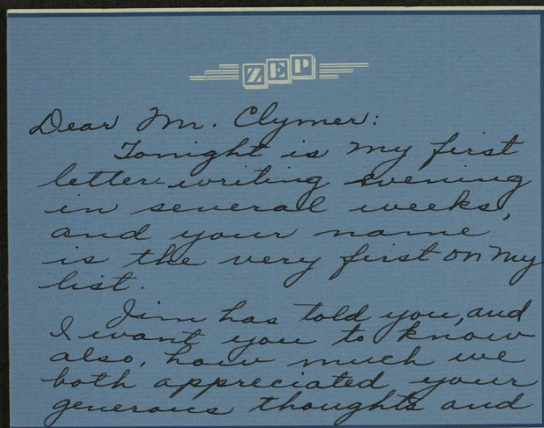 ZEP
Dear Mr. Clymer:
Tonight is my first
letter-writing evening
in several weeks,
and your name
is the very first on my
list.
Jim has told you, and
I want you to know
also, how much we
both appreciated your
generous thoughts and